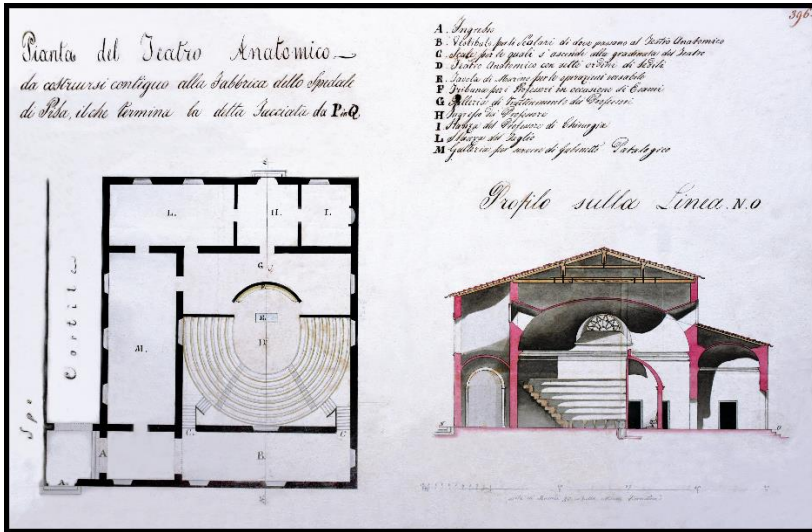 396
Pianta del Teatro Anatomico
da costruirsi contiguo alla Fabbrica dello Spedale
di Pisa, il che termina la detta Facciata da P in Q.
A. Ingresso
B. Vestibolo per li Scolari di dove passano al Teatro Anatomico
C. Scale per le quali s'ascende alla gradinata del Teatro
D. Teatro Anatomico con sette ordini di Sedili
E. Tavola di Marmo per le
F. Tribuna per i Professori in occasione di Esami
G. Galleria di Trattenimento dei Professori
H. Ingresso dei Professori
I. Stanza del Professore di Chirurgia
L. Stanza del Taglio
M. Galleria per uso di Gabinetto Patologico
Profilo sulla Linea N.O
L. H. I.
G.
F.
E.
D
M.
Cortile
Spe
C. C
A B.
A.
N O